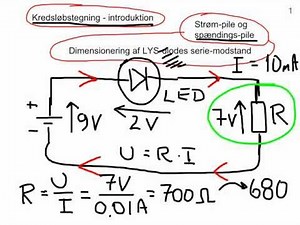 1
Kredsløbstegning - introduktion
Strøm-pile og
spændings-pile
Dimensionering af LYS-diodes serie-modstand
I = 10mA
LED
+
-
9V
2V
7V
R
U = R · I
R = U/I = 7V/0.01A = 700Ω → 680